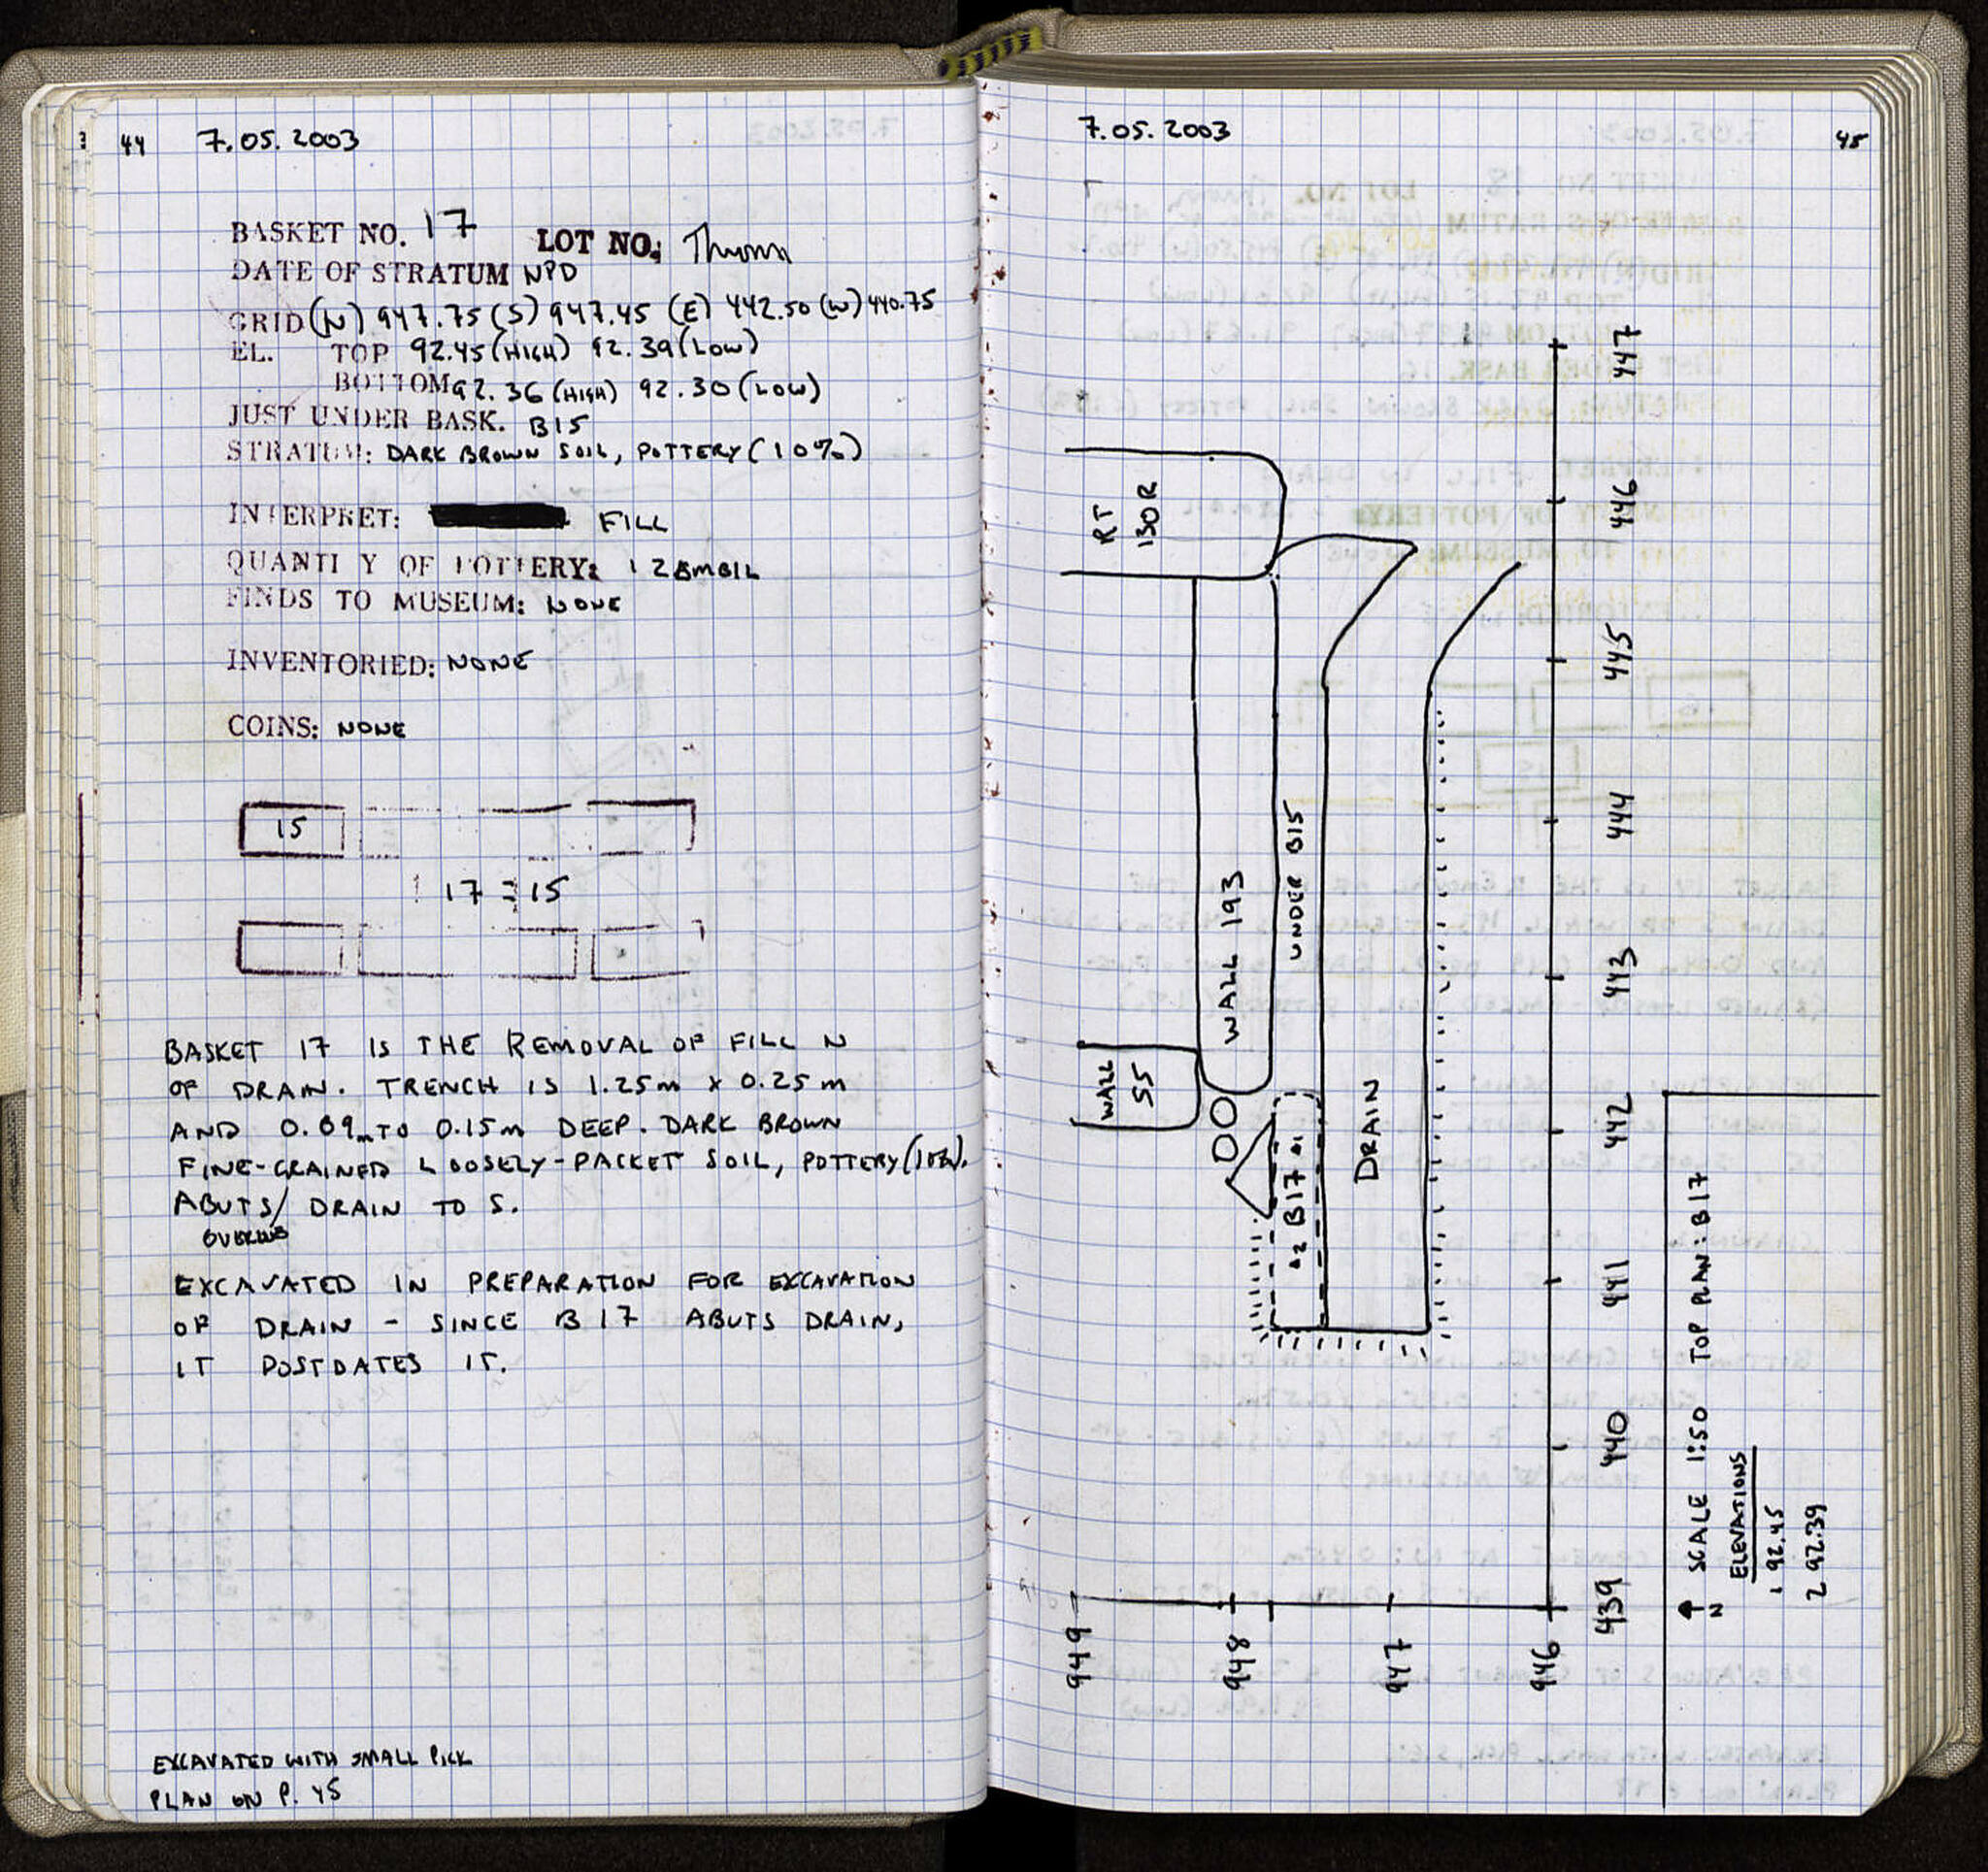 44 7.05.2003
BASKET NO. 17 LOT NO: Thrown
DATE OF STRATUM NPD
GRID (N) 947.75 (S) 947.45 (E) 442.50 (W) 440.75
EL. TOP 92.45 (HIGH) 92.39 (LOW)
BOTTOM 92.36 (HIGH) 92.30 (LOW)
JUST UNDER BASK. B15
STRATUM: DARK BROWN SOIL, POTTERY (10%)
INTERPRET: FILL
QUANTI Y OF POTTERY:
FINDS TO MUSEUM: NONE
INVENTORIED: NONE
COINS: NONE
15
17 = 15
BASKET 17 IS THE REMOVAL OF FILL N
OF DRAIN. TRENCH IS 1.25m x 0.25m
AND 0.09m TO 0.15m DEEP. DARK BROWN
FINE-GRAINED LOOSELY-PACKET SOIL, POTTERY (10%).
ABUTS/ DRAIN TO S.
OVERLIES
EXCAVATED IN PREPARATION FOR EXCAVATION
OF DRAIN - SINCE B17 ABUTS DRAIN,
IT POSTDATES IT.
EXCAVATED WITH SMALL PICK
PLAN ON P. 45
7.05.2003 45
RT
130R
WALL 193
UNDER B15
WALL
55
DRAIN
.2 B17 .1
447
446
445
444
443
442
441
440
439
949
948
947
946
N SCALE 1:50 TOP PLAN: B17
ELEVATIONS
1 92.45
2 92.39